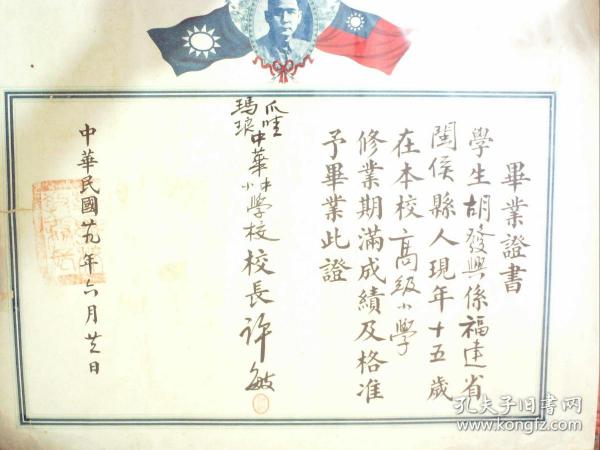 畢業證書
學生胡發興係福建省
閩侯縣人現年十五歲
在本校高級小學
修業期滿成績及格准
予畢業此證
爪哇
瑪琅中華中小學校校長許敏
中華民國廿九年六月廿三日
孔夫子旧书网
www.kongfz.com